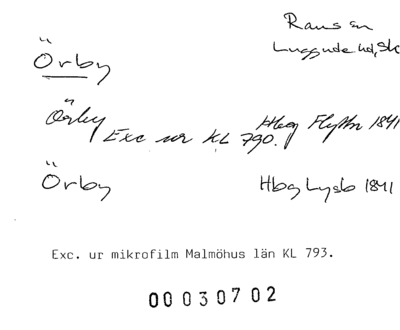 Raus sn
Örby
Luggude hd, Sk
Örby
Hbg Flyttn 1841
Exc ur KL 790.
Örby
Hbg Lysb 1841
Exc. ur mikrofilm Malmöhus län KL 793.
00030702